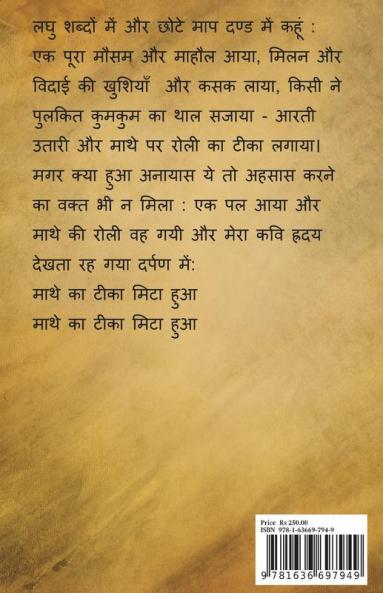 लघु शब्दों में और छोटे माप दण्ड में कहूं :
एक पूरा मौसम और माहौल आया, मिलन और
विदाई की खुशियाँ और कसक लाया, किसी ने
पुलकित कुमकुम का थाल सजाया - आरती
उतारी और माथे पर रोली का टीका लगाया।
मगर क्या हुआ अनायास ये तो अहसास करने
का वक्त भी न मिला : एक पल आया और
माथे की रोली वह गयी और मेरा कवि ह्रदय
देखता रह गया दर्पण में:
माथे का टीका मिटा हुआ
माथे का टीका मिटा हुआ
Price Rs 250.00
ISBN 978-1-63669-794-9
9 781636 697949